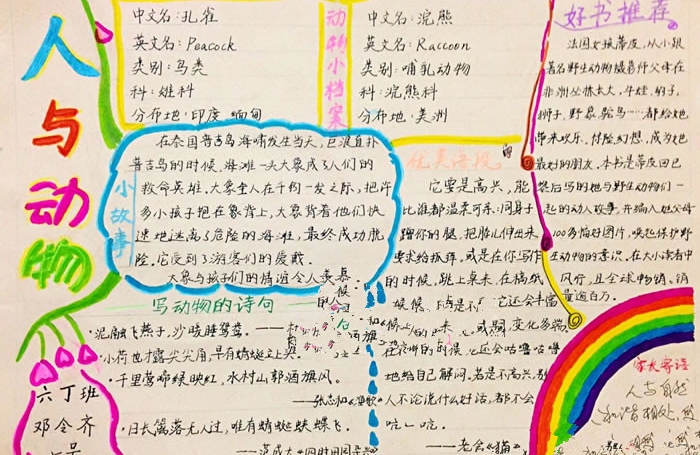 人与动物
中文名:孔雀
英文名:Peacock
类别:鸟类
科:雉科
分布地:印度、缅甸
动物小档案
中文名:浣熊
英文名:Raccoon
类别:哺乳动物
科:浣熊科
分布地:美洲
好书推荐
法国女孩蒂皮,从小跟
著名野生动物摄影师父母在
非洲丛林长大,牛蛙、豹子、
狮子、野象、鸵鸟……都给她
带来欢乐、惊险幻想,成为她
最好的朋友。本书是蒂皮回巴
黎后写的她与野生动物们一
起的动人故事,并编入她父母
100多幅好图片,唤起保护野
生动物的意识。在大小读者中
风行,且全球畅销,销
量逾百万。
小故事
在泰国普吉岛海啸发生当天,巨浪直扑
普吉岛的时候,海滩一头大象成了人们的
救命英雄。大象主人在千钧一发之际,把许
多小孩子抱在象背上,大象背着他们快
速地逃离了危险的海滩。最终成功脱
险,它受到了游客们的爱戴。
大象与孩子们的情谊令人羡慕
优美语段
它要是高兴,能
比谁都温柔可亲:用身子
蹭你的腿,把脖儿伸出来
要求给抓痒,或是在你写作
的时候,跳上桌来,在稿纸
它还会丰富
变化多端
在没讲的时候,它还会咕噜咕噜
地给自己解闷。若是不高兴,别
人不论说什么好话,都不会
吭一吭。
——老舍《猫》
写动物的诗句
·泥融飞燕子,沙暖睡鸳鸯。——杜
·小荷才露尖尖角,早有蜻蜓立上头。
·千里莺啼绿映红,水村山郭酒旗风。
——张志和《渔歌》
·日长篱落无人过,惟有蜻蜓蛱蝶飞。
——范成大《四时田园
六丁班
邓令齐
号
家长寄语
人与自然
和谐相处